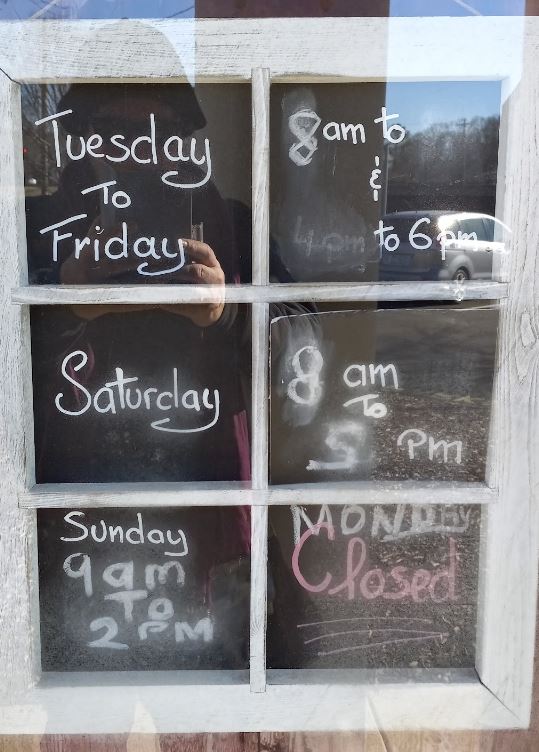 Tuesday
To
Friday
8am to
&
4 pm to 6 pm
Saturday
8 am
To
Pm
Sunday
9am
To
2 PM
MONDAY
Closed